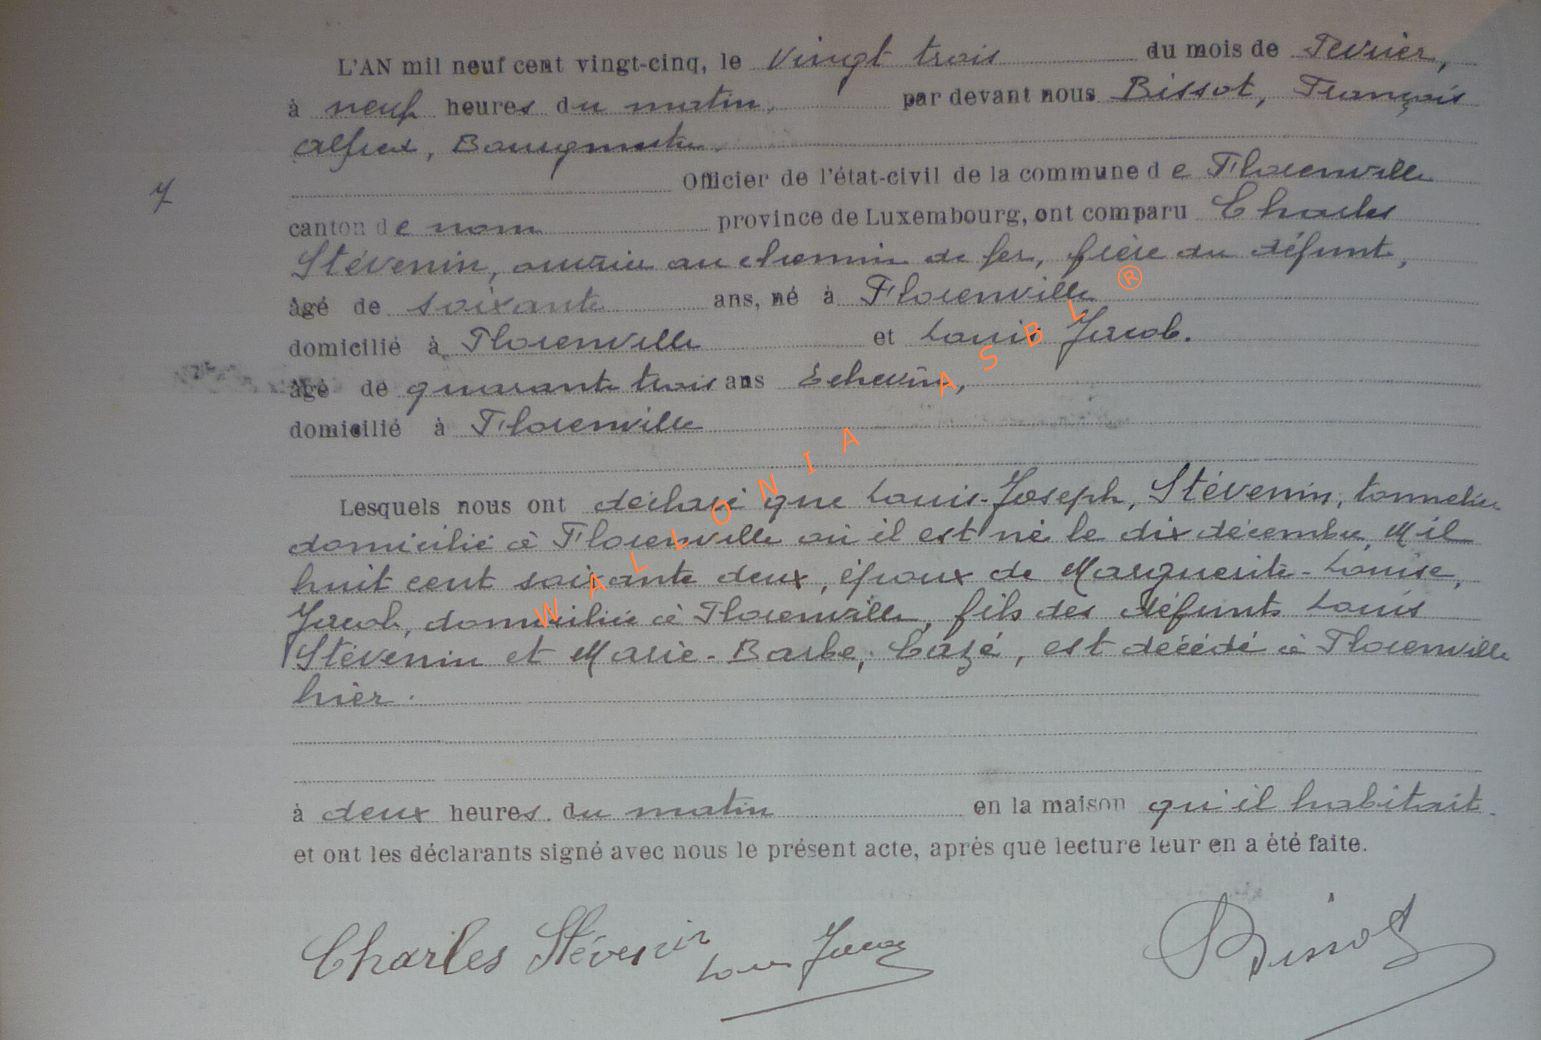 L'AN mil neuf cent vingt-cinq, le vingt trois du mois de Fevrier,
à neuf heures du matin, par devant nous Bissot, François
Alfred, Bourgmestre.
7
Officier de l'état-civil de la commune de Florenville
canton de nom province de Luxembourg, ont comparu Charles
Stévenin, ouvrier au chemin de fer, frère du défunt,
âgé de soixante ans, né à Florenville
domicilié à Florenville et Louis Jacob.
âgé de quarante trois ans Echevin,
domicilié à Florenville
Lesquels nous ont déclaré que Louis-Joseph, Stévenin, tonnelier
domicilié à Florenville où il est né le dix décembre Mil
huit cent soixante deux, époux de Marguerite-Louise,
Jacob, domiciliée à Florenville, fils des défunts Louis
Stévenin et Marie-Barbe, Cazé, est décédé à Florenville
hier.
à deux heures du matin en la maison qu'il habitait.
et ont les déclarants signé avec nous le présent acte, après que lecture leur en a été faite.
Charles Stévenin Louis Jacob Bissot
WALLONIA ASBL ®